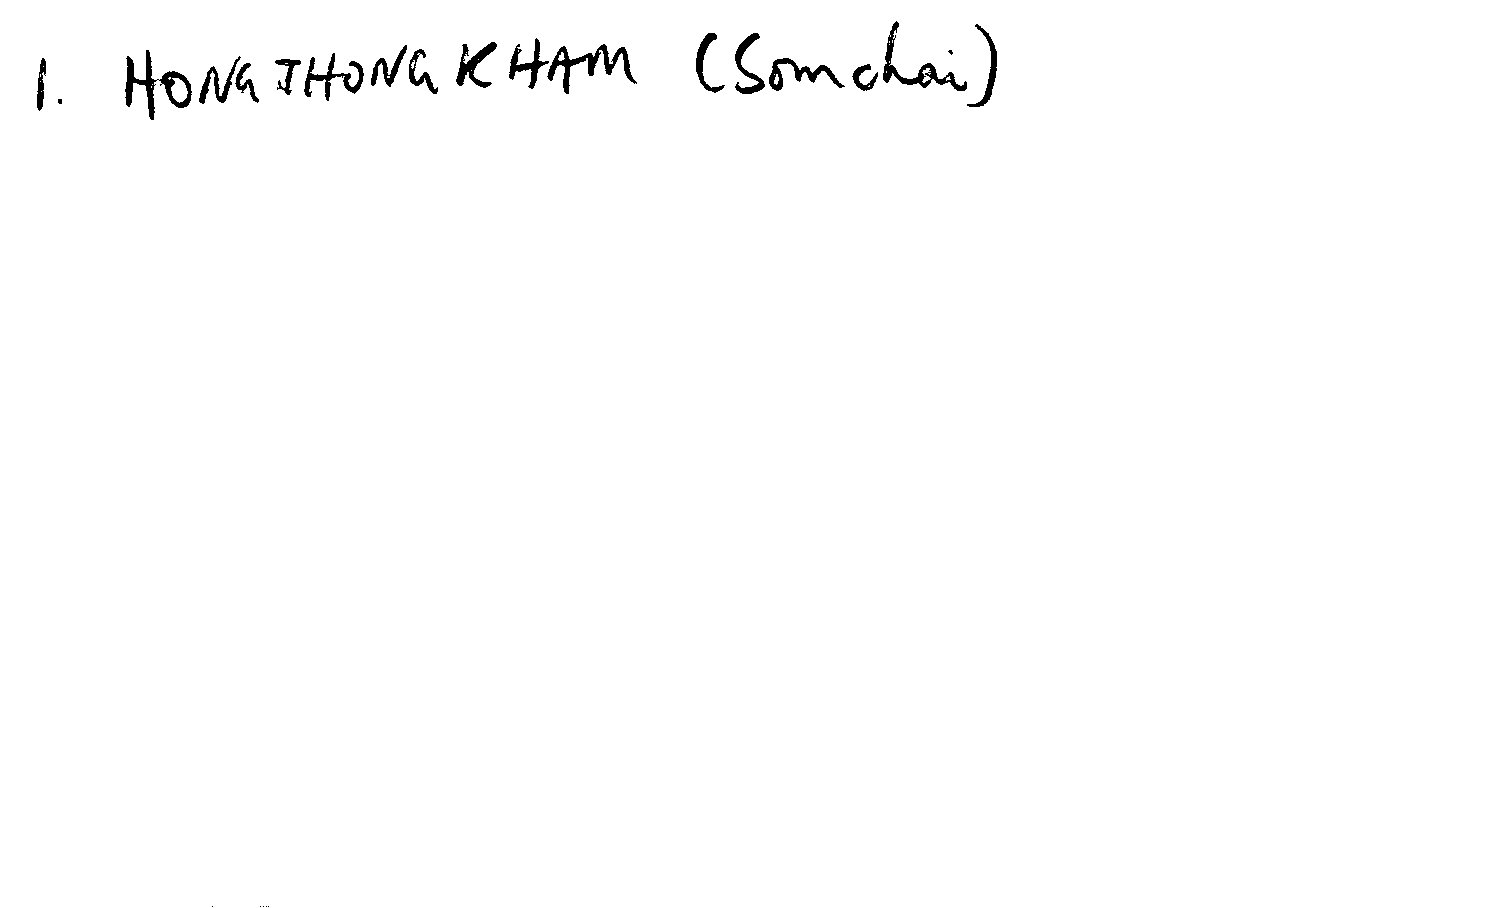 1. HONGTHONGKHAM (Somchai)